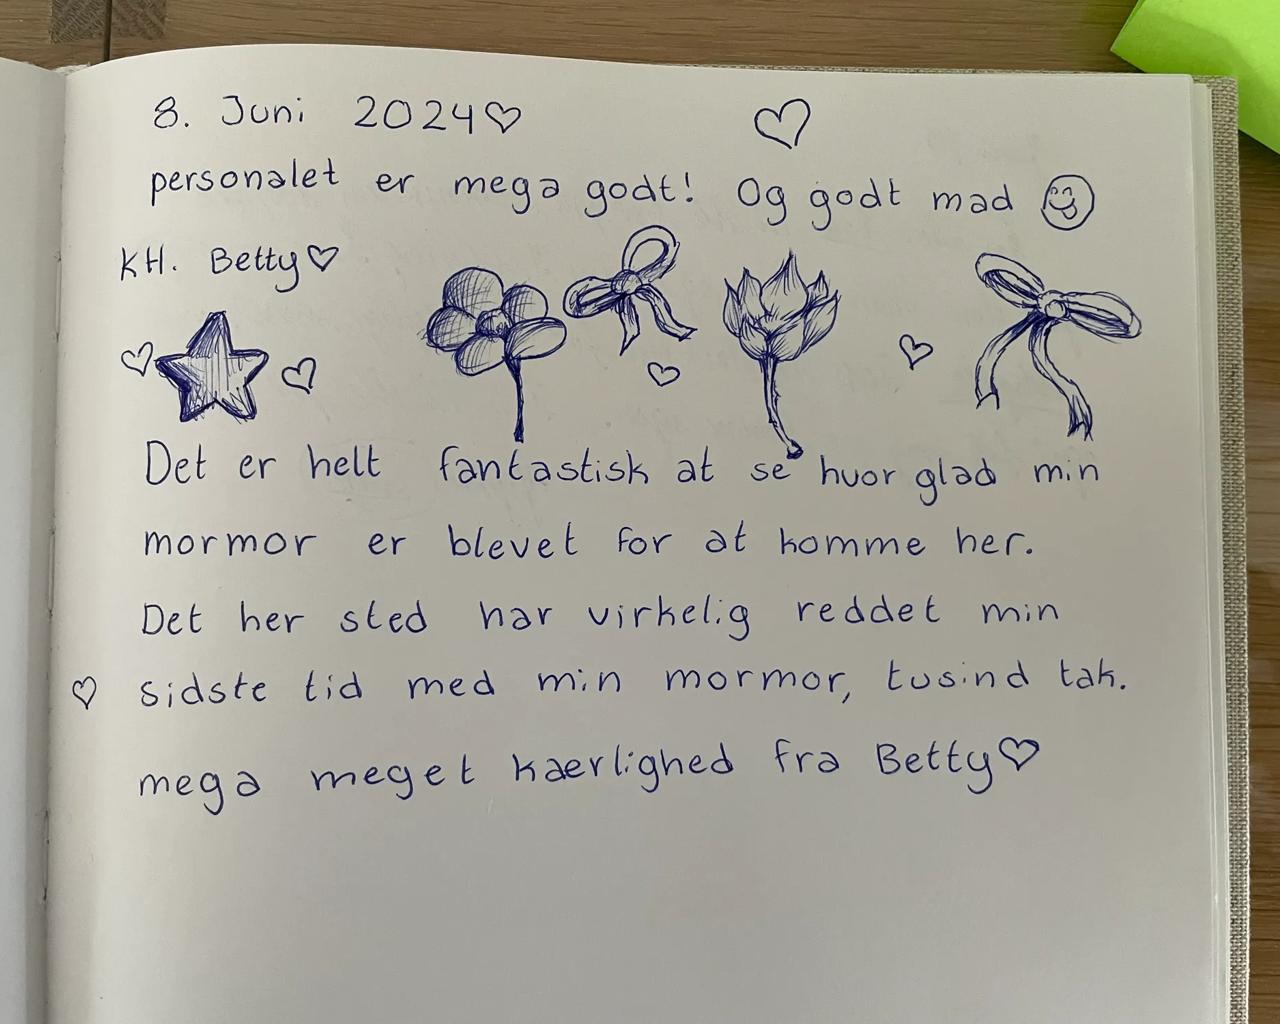 8. Juni 2024♡
personalet er mega godt! Og godt mad
KH. Betty♡
Det er helt fantastisk at se hvor glad min
mormor er blevet for at komme her.
Det her sted har virkelig reddet min
♡ sidste tid med min mormor, tusind tak.
mega meget kærlighed fra Betty♡